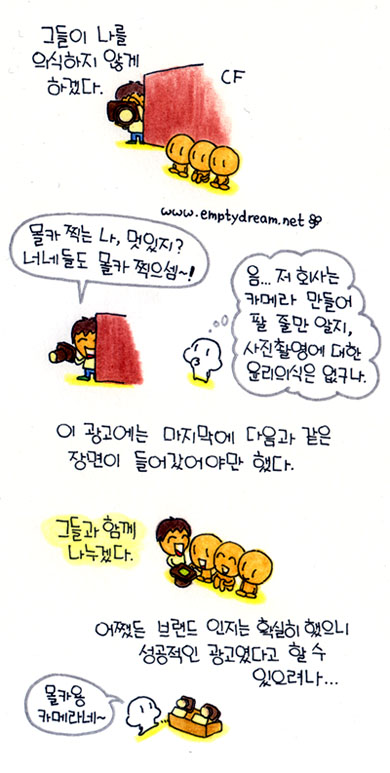 그들이 나를
의식하지 않게
하겠다.
CF
www.emptydream.net
몰카 찍는 나, 멋있지?
너네들도 몰카 찍으셈~!
음... 저 회사는
카메라 만들어
팔 줄만 알지,
사진촬영에 대한
윤리의식은 없구나.
이 광고에는 마지막에 다음과 같은
장면이 들어갔어야만 했다.
그들과 함께
나누겠다.
어쨌든 브랜드 인지는 확실히 했으니
성공적인 광고였다고 할 수
있으려나...
몰카용
카메라네~